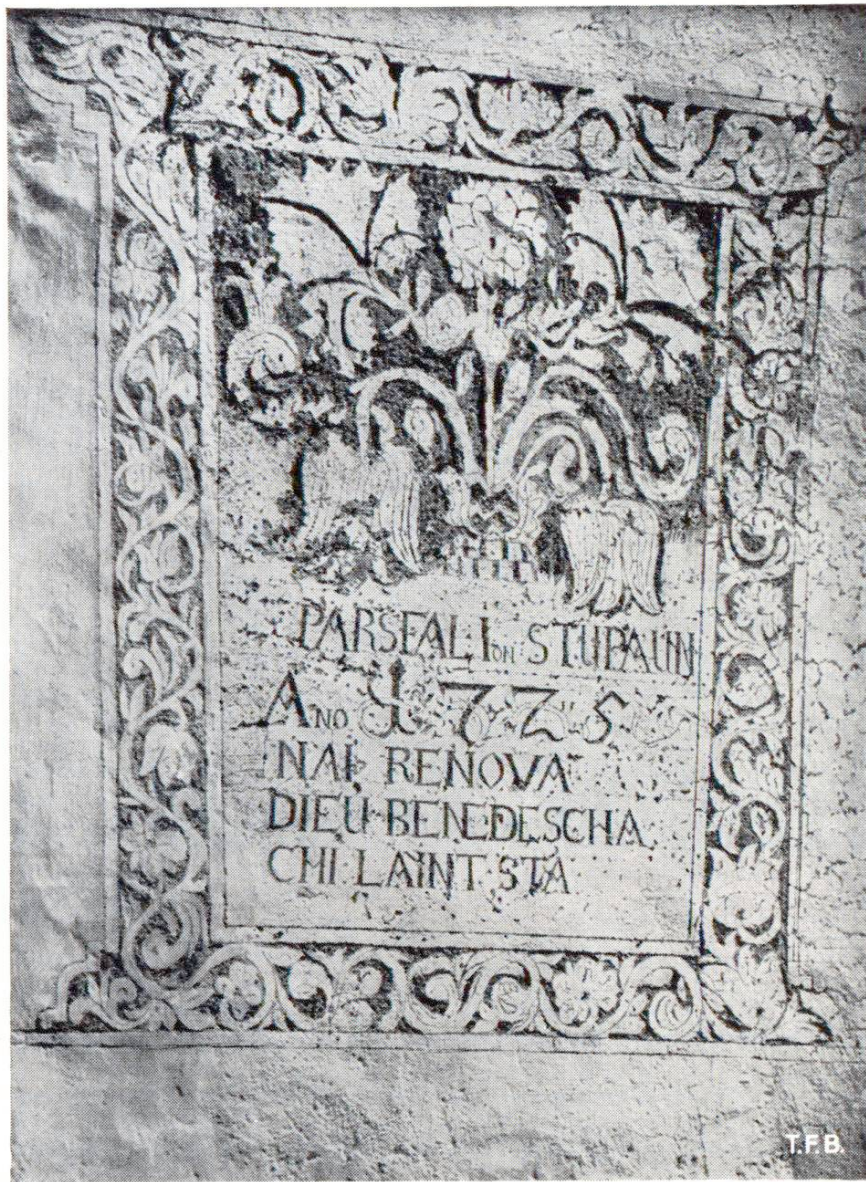 PARSFAL·Ion·STUPAUN
ANO 1725
NAI RENOVA
DIEU·BENEDESCHA
CHI LAINT STÀ
T.F.B.